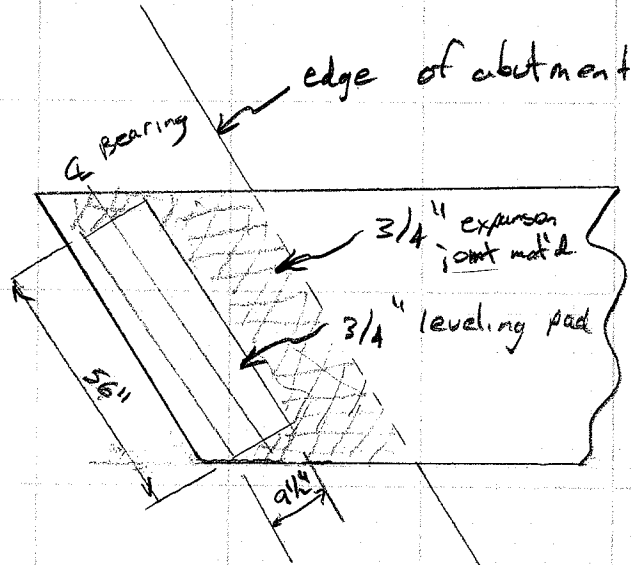 edge of abutment
℄ Bearing
3/4" expansion
joint mat'l
3/4" leveling pad
56"
9½"